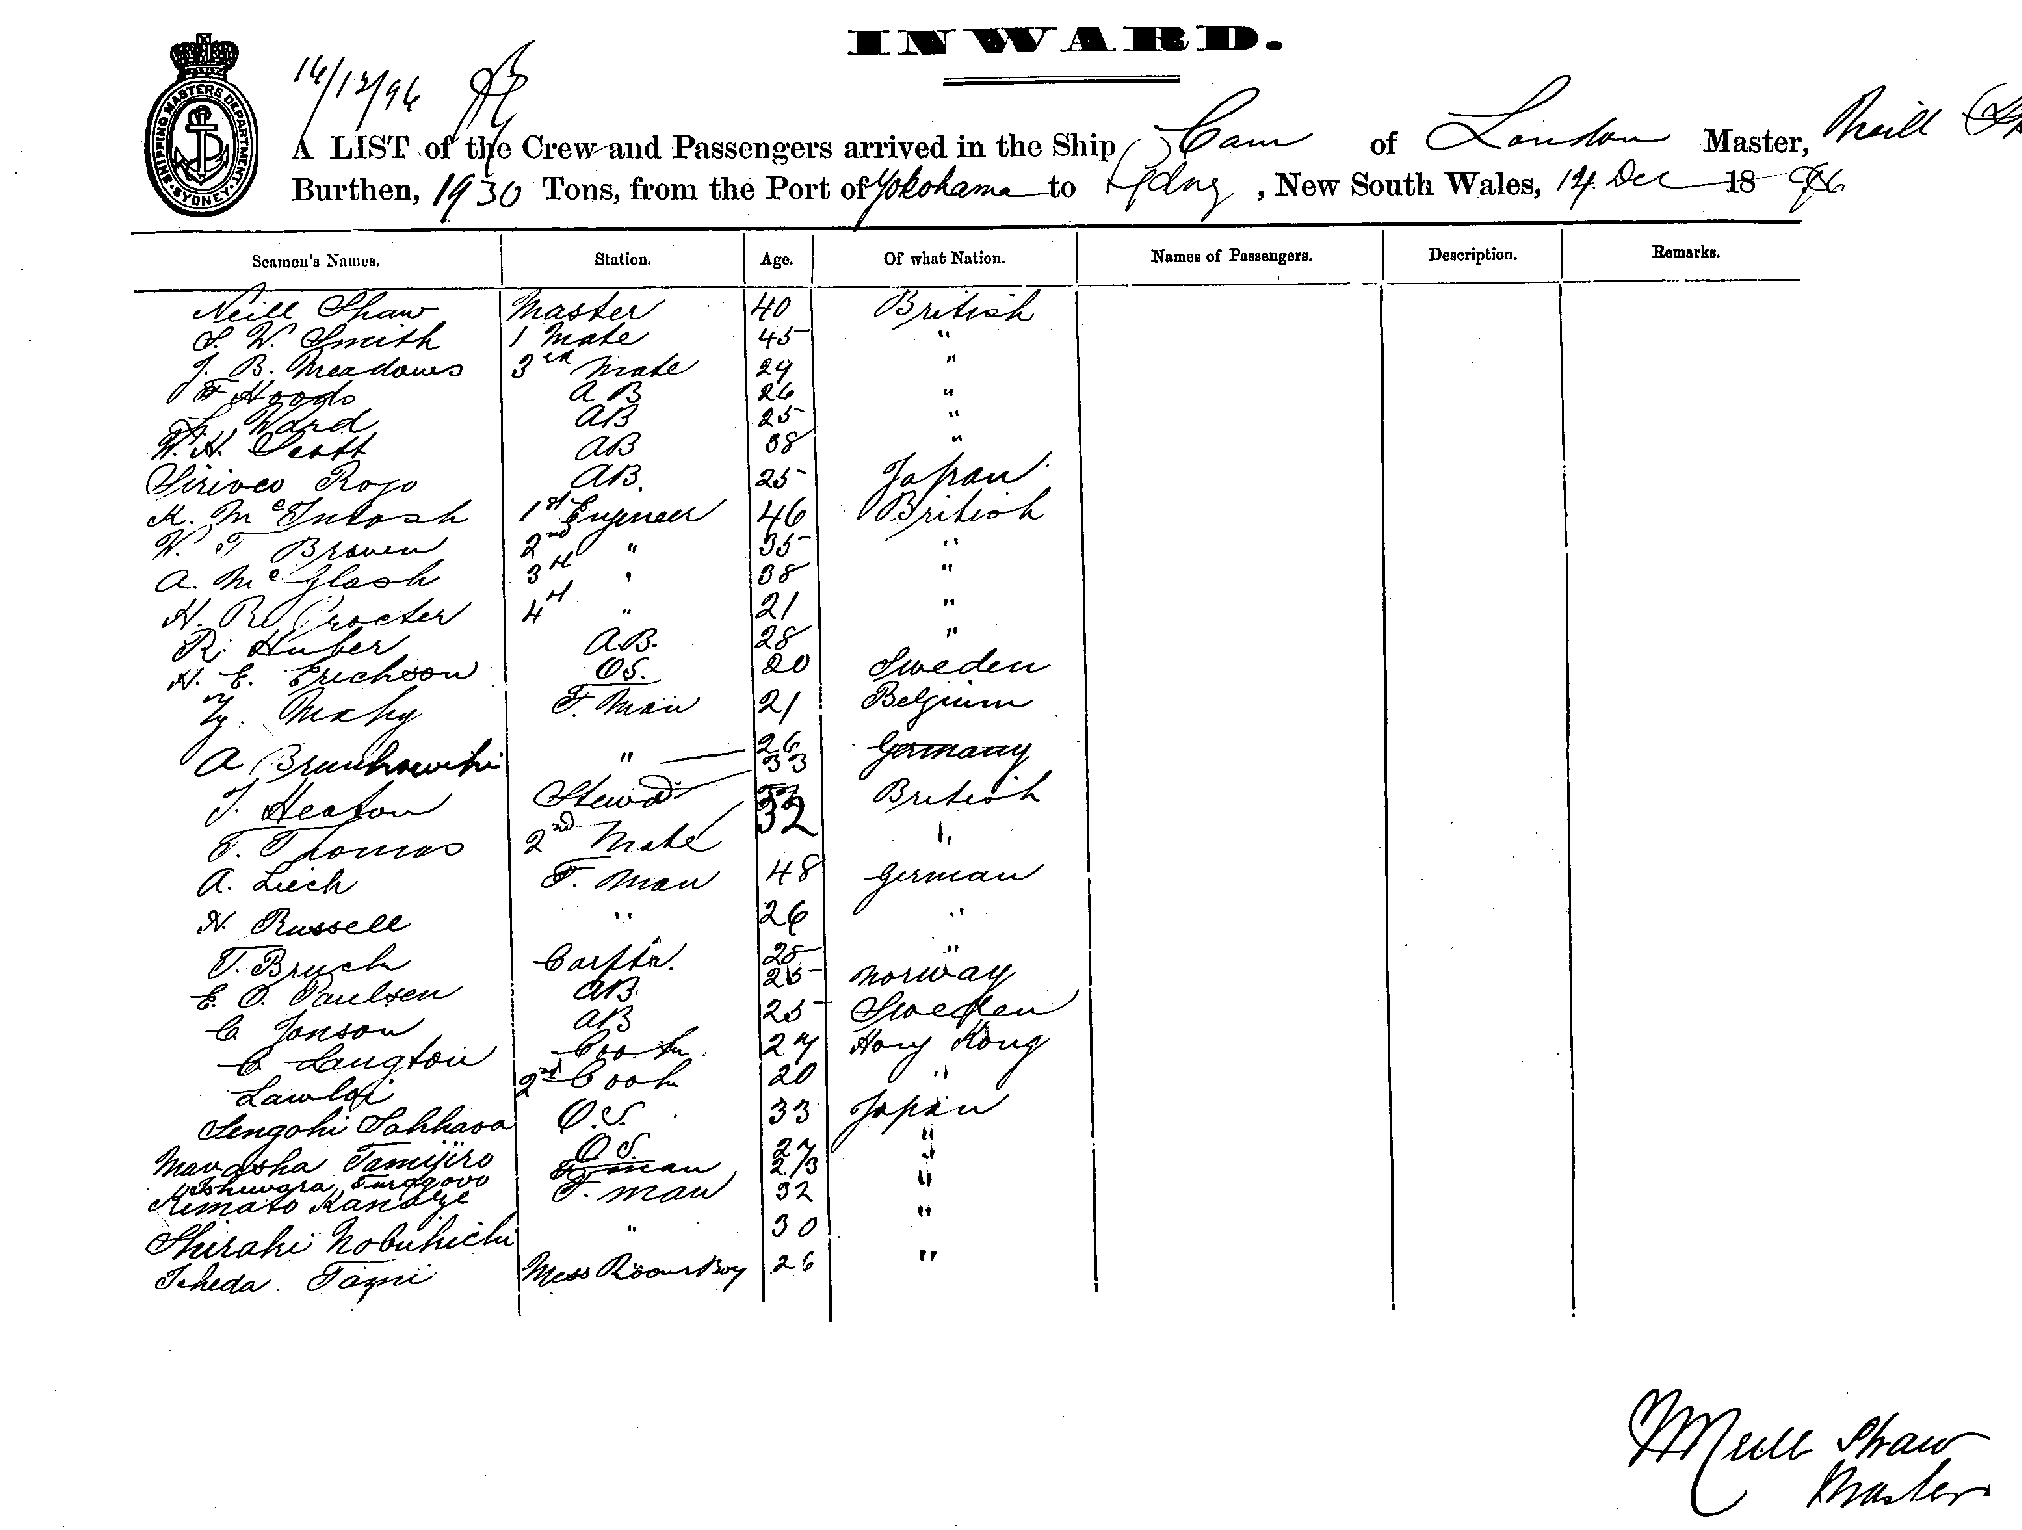 INWARD.
SHIPPING MASTERS DEPARTMENT SYDNEY
14/12/96
A LIST of the Crew and Passengers arrived in the Ship Cam of London Master, Neill
Burthen, 1930 Tons, from the Port of Yokohama to Sydney, New South Wales, 14 Dec 1896
Seamen's Names. Station. Age. Of what Nation. Names of Passengers. Description. Remarks.
Neill Shaw Master 40 British
S. W. Smith 1 Mate 45 "
J. B. Meadows 3rd Mate 29 "
F Hoods AB 26 "
Ward AB 25 "
W. H. Scott AB 38 "
AB. 25 Japan
K. McIntosh 1st Engineer 46 British
W. T Brown 2nd " 35 "
A. McGlash 3rd " 38 "
H. R. Procter 4th " 21 "
R. Huber A.B. 28 "
H. E. Erichson OS. 20 Sweden
Mahy F. Man 21 Belgium
A " 26 Germany
33
T. Heaton Stewd British
F. Thomas 2nd Mate 32 "
A. Liech F. Man 48 German
H. Russell " 26 "
T. Bruch Carptr. 28 "
E. O. Paulsen AB 25 Norway
C Jonson AB 25 Sweden
C Langton Cook 27 Hong Kong
Lawloi 2nd Cook 20 "
Sengohi Tahhara O.S. 33 Japan
Tamijiro O.S. 27 "
F. man 23
Kemato Kanaye F. man 32 "
Shirahi Nobukichi " 30 "
Tcheda Tami Mess Room Boy 26 "
Neill Shaw
Master